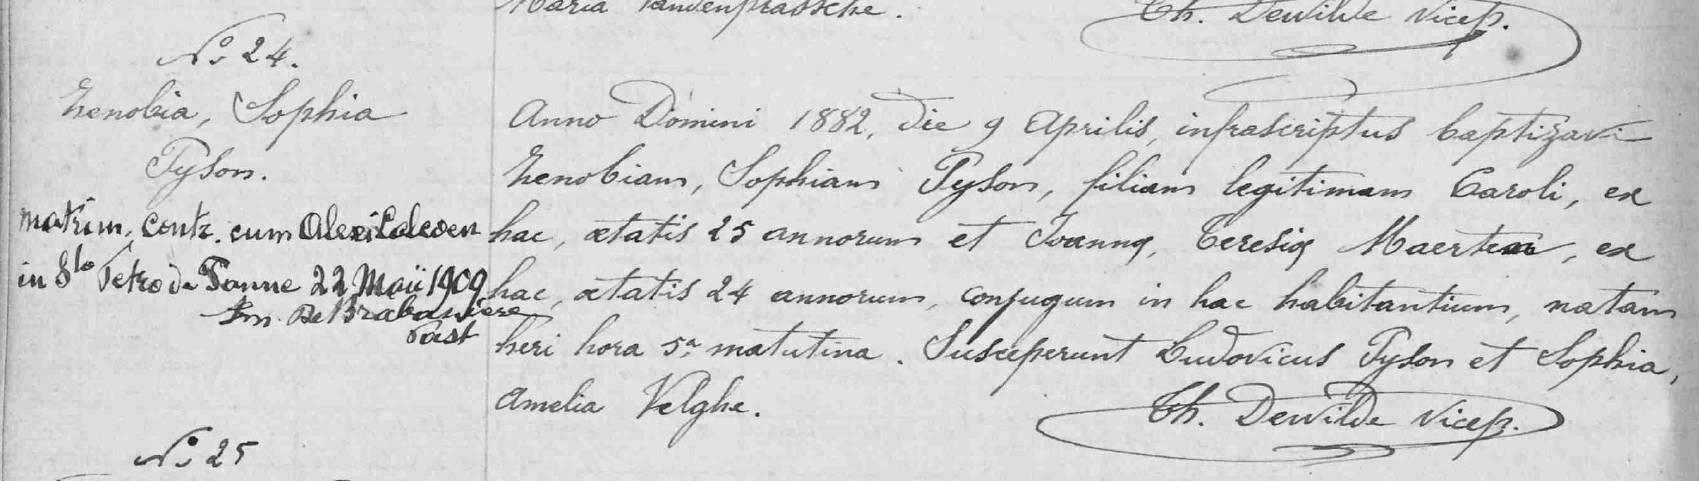 Maria Vandenprassche.
Th. Dewilde vicep.
No 24.
Zenobia, Sophia
Tyson.
matrim. contr. cum Alexi
in Sto Petro de Panne 22 Maii 1909
De Brabandere
Past
Anno Domini 1882, die 9 Aprilis, infrascriptus baptizavi
Zenobiam, Sophiam Tyson, filiam legitimam Caroli, ex
hac, ætatis 25 annorum et Joannæ, Teresiæ Maerten, ex
hac, ætatis 24 annorum, conjugum in hac habitantium, natam
heri hora 5a matutina. Susceperunt Ludovicus Tyson et Sophia,
Amelia Velghe.
Th. Dewilde vicep.
No 25